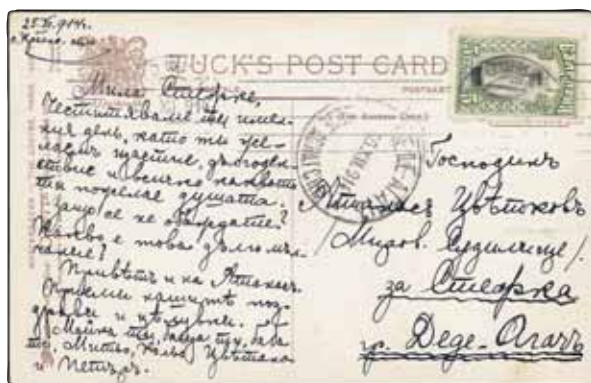 25.XI.914 г.
TUCK'S POST CARD
Мила Стефке,
Честитяваме ти имен-
ния день, като ти же-
лаемъ щастие, дългоден-
ствие и всичко каквото
ти пожелае душата.
Защо се не обаждате?
Какво е това дългомъл-
чание?
Привѣтъ и на Атанасъ.
Приеми нашитѣ поз-
драви и цѣлувки.
Майка ти, баща ти,
Митьо, Цвѣтана
и Петъръ.
Господинъ
Атанасъ Цвѣтковъ
/Миров. Съдилище/
за Стефка
гр. Деде-Агачъ